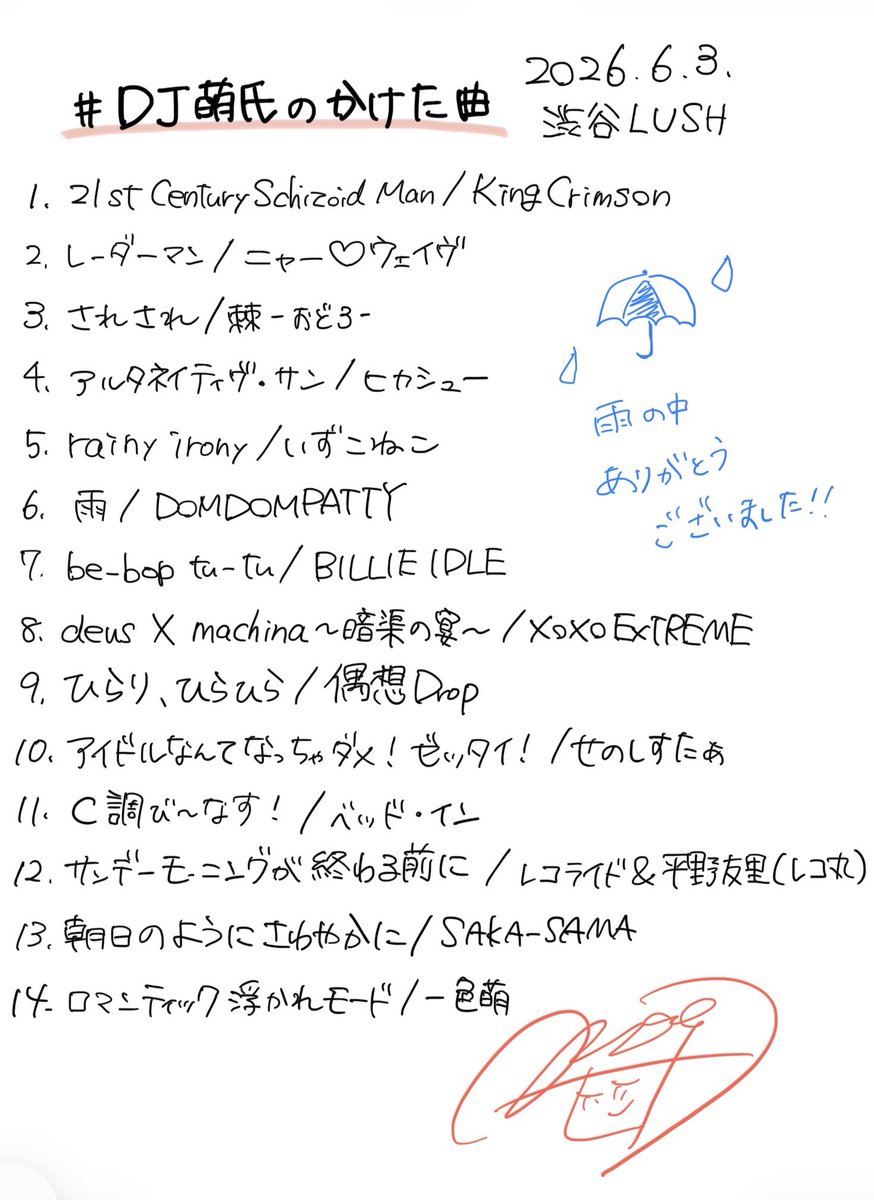 #DJ萌氏のかけた曲
2026.6.3.
渋谷LUSH
1. 21st Century Schizoid Man / King Crimson
2. レーダーマン / ニャー♡ウェイヴ
3. されされ / 棘-おどろ-
4. アルタネイティヴ・サン / ヒカシュー
5. rainy irony / いずこねこ
6. 雨 / DOMDOMPATTY
7. be-bop tu-tu / BILLIE IDLE
8. deus X machina～暗渠の宴～ / XOXO EXTREME
9. ひらり、ひらひら / 偶想Drop
10. アイドルなんてなっちゃダメ!ゼッタイ! / せのしすたぁ
11. C調び～なす! / ベッド・イン
12. サンデーモーニングが終わる前に / レコライド&平野友里(レコ丸)
13. 朝日のようにさわやかに / SAKA-SAMA
14. ロマンティック浮かれモード / 一色萌
雨の中
ありがとう
ございました!!